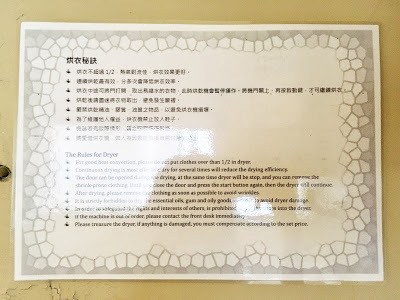 烘衣秘訣
烘衣不超過 1/2，熱氣對流佳，烘衣效果更好。
連續烘乾最有效，分多次會降低烘衣效率。
烘衣中途可將門打開，取出易縮水的衣物，此時烘衣機會暫停運作，將機門關上，再按啟動鍵，才可繼續烘衣
烘乾後請盡速將衣物取出，避免發生皺褶。
嚴禁烘乾精油、膠質、油質之物品，以避免烘衣機損壞。
為了維護他人權益，烘衣機禁止放入鞋子。
The Rules for Dryer
For good heat convection, please do not put clothes over than 1/2 in dryer.
Continuous drying is most effective, dry for several times will reduce the drying efficiency.
The door can be opened during the drying, at the same time dryer will be stop, and you can remove the
shrink-prone clothing. Then you close the door and press the start button again, then the dryer will continue.
After drying, please remove the clothing as soon as possible to avoid wrinkles.
It is strictly forbidden to dry the essential oils, gum and oily goods, to avoid dryer damage.
In order to safeguard the rights and interests of others, is prohibited into the dryer.
If the machine is out of order, please contact the front desk immediately.
Please treasure the dryer, if anything is damaged, you must compensate according to the set price.